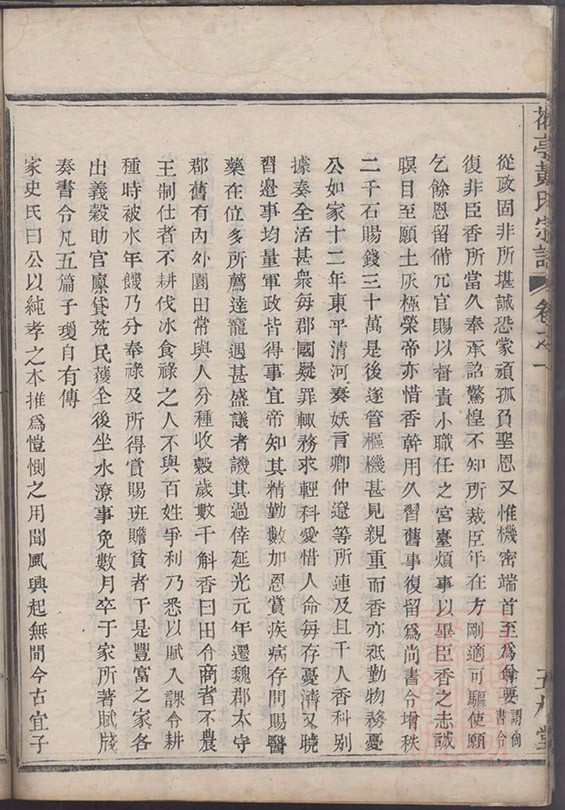 從政固非所堪誠恐蒙頑孤負聖恩又惟機密端首至爲尊要謂尙書令
復非臣香所當久奉承詔驚惶不知所裁臣年在方剛適可驅使願
乞餘恩留備冗官賜以督責小職任之宮臺煩事以畢臣香之志誠
瞑目至願土灰極榮帝亦惜香幹用久習舊事復留爲尙書令增秩
二千石賜錢三十萬是後遂管樞機甚見親重而香亦祇勤物務憂
公如家十二年東平清河奏妖言卿仲遼等所連及且千人香科别
據奏全活甚衆每郡國疑罪輙務求輕科愛惜人命每存憂濟又曉
習邊事均量軍政皆得事宜帝知其精勤數加恩賞疾病存問賜醫
藥在位多所薦達寵遇甚盛議者譏其過倖延光元年遷魏郡太守
郡舊有內外園田常與人分種收穀歲數千斛香曰田令商者不農
王制仕者不耕伐冰食祿之人不與百姓爭利乃悉以賦入課令耕
種時被水年饑乃分奉祿及所得賞賜班贍貧者于是豐富之家各
出義穀助官稟貸荒民獲全後坐水潦事免數月卒于家所著賦牋
奏書令凡五篇子瓊自有傳
家史氏曰公以純孝之本推爲愷惻之用聞風興起無間今古宜子
亭黃氏宗譜
卷之一
堂